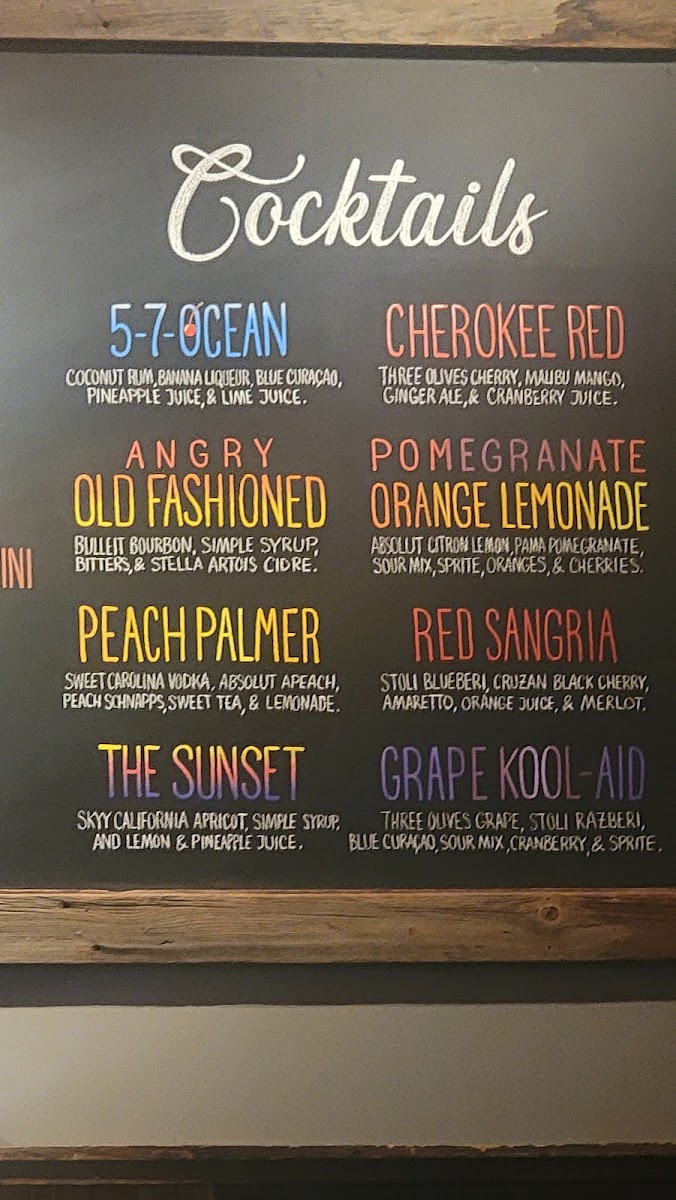 Cocktails
5-7-OCEAN
COCONUT RUM, BANANA LIQUEUR, BLUE CURAÇAO,
PINEAPPLE JUICE, & LIME JUICE.
CHEROKEE RED
THREE OLIVES CHERRY, MALIBU MANGO,
GINGER ALE, & CRANBERRY JUICE.
ANGRY
OLD FASHIONED
BULLEIT BOURBON, SIMPLE SYRUP,
BITTERS, & STELLA ARTOIS CIDRE.
POMEGRANATE
ORANGE LEMONADE
ABSOLUT CITRON LEMON, PAMA POMEGRANATE,
SOUR MIX, SPRITE, ORANGES, & CHERRIES.
INI
PEACH PALMER
SWEET CAROLINA VODKA, ABSOLUT APEACH,
PEACH SCHNAPPS, SWEET TEA, & LEMONADE.
RED SANGRIA
STOLI BLUEBERI, CRUZAN BLACK CHERRY,
AMARETTO, ORANGE JUICE, & MERLOT.
THE SUNSET
SKYY CALIFORNIA APRICOT, SIMPLE SYRUP,
AND LEMON & PINEAPPLE JUICE.
GRAPE KOOL-AID
THREE OLIVES GRAPE, STOLI RAZBERI,
BLUE CURAÇAO, SOUR MIX, CRANBERRY, & SPRITE.